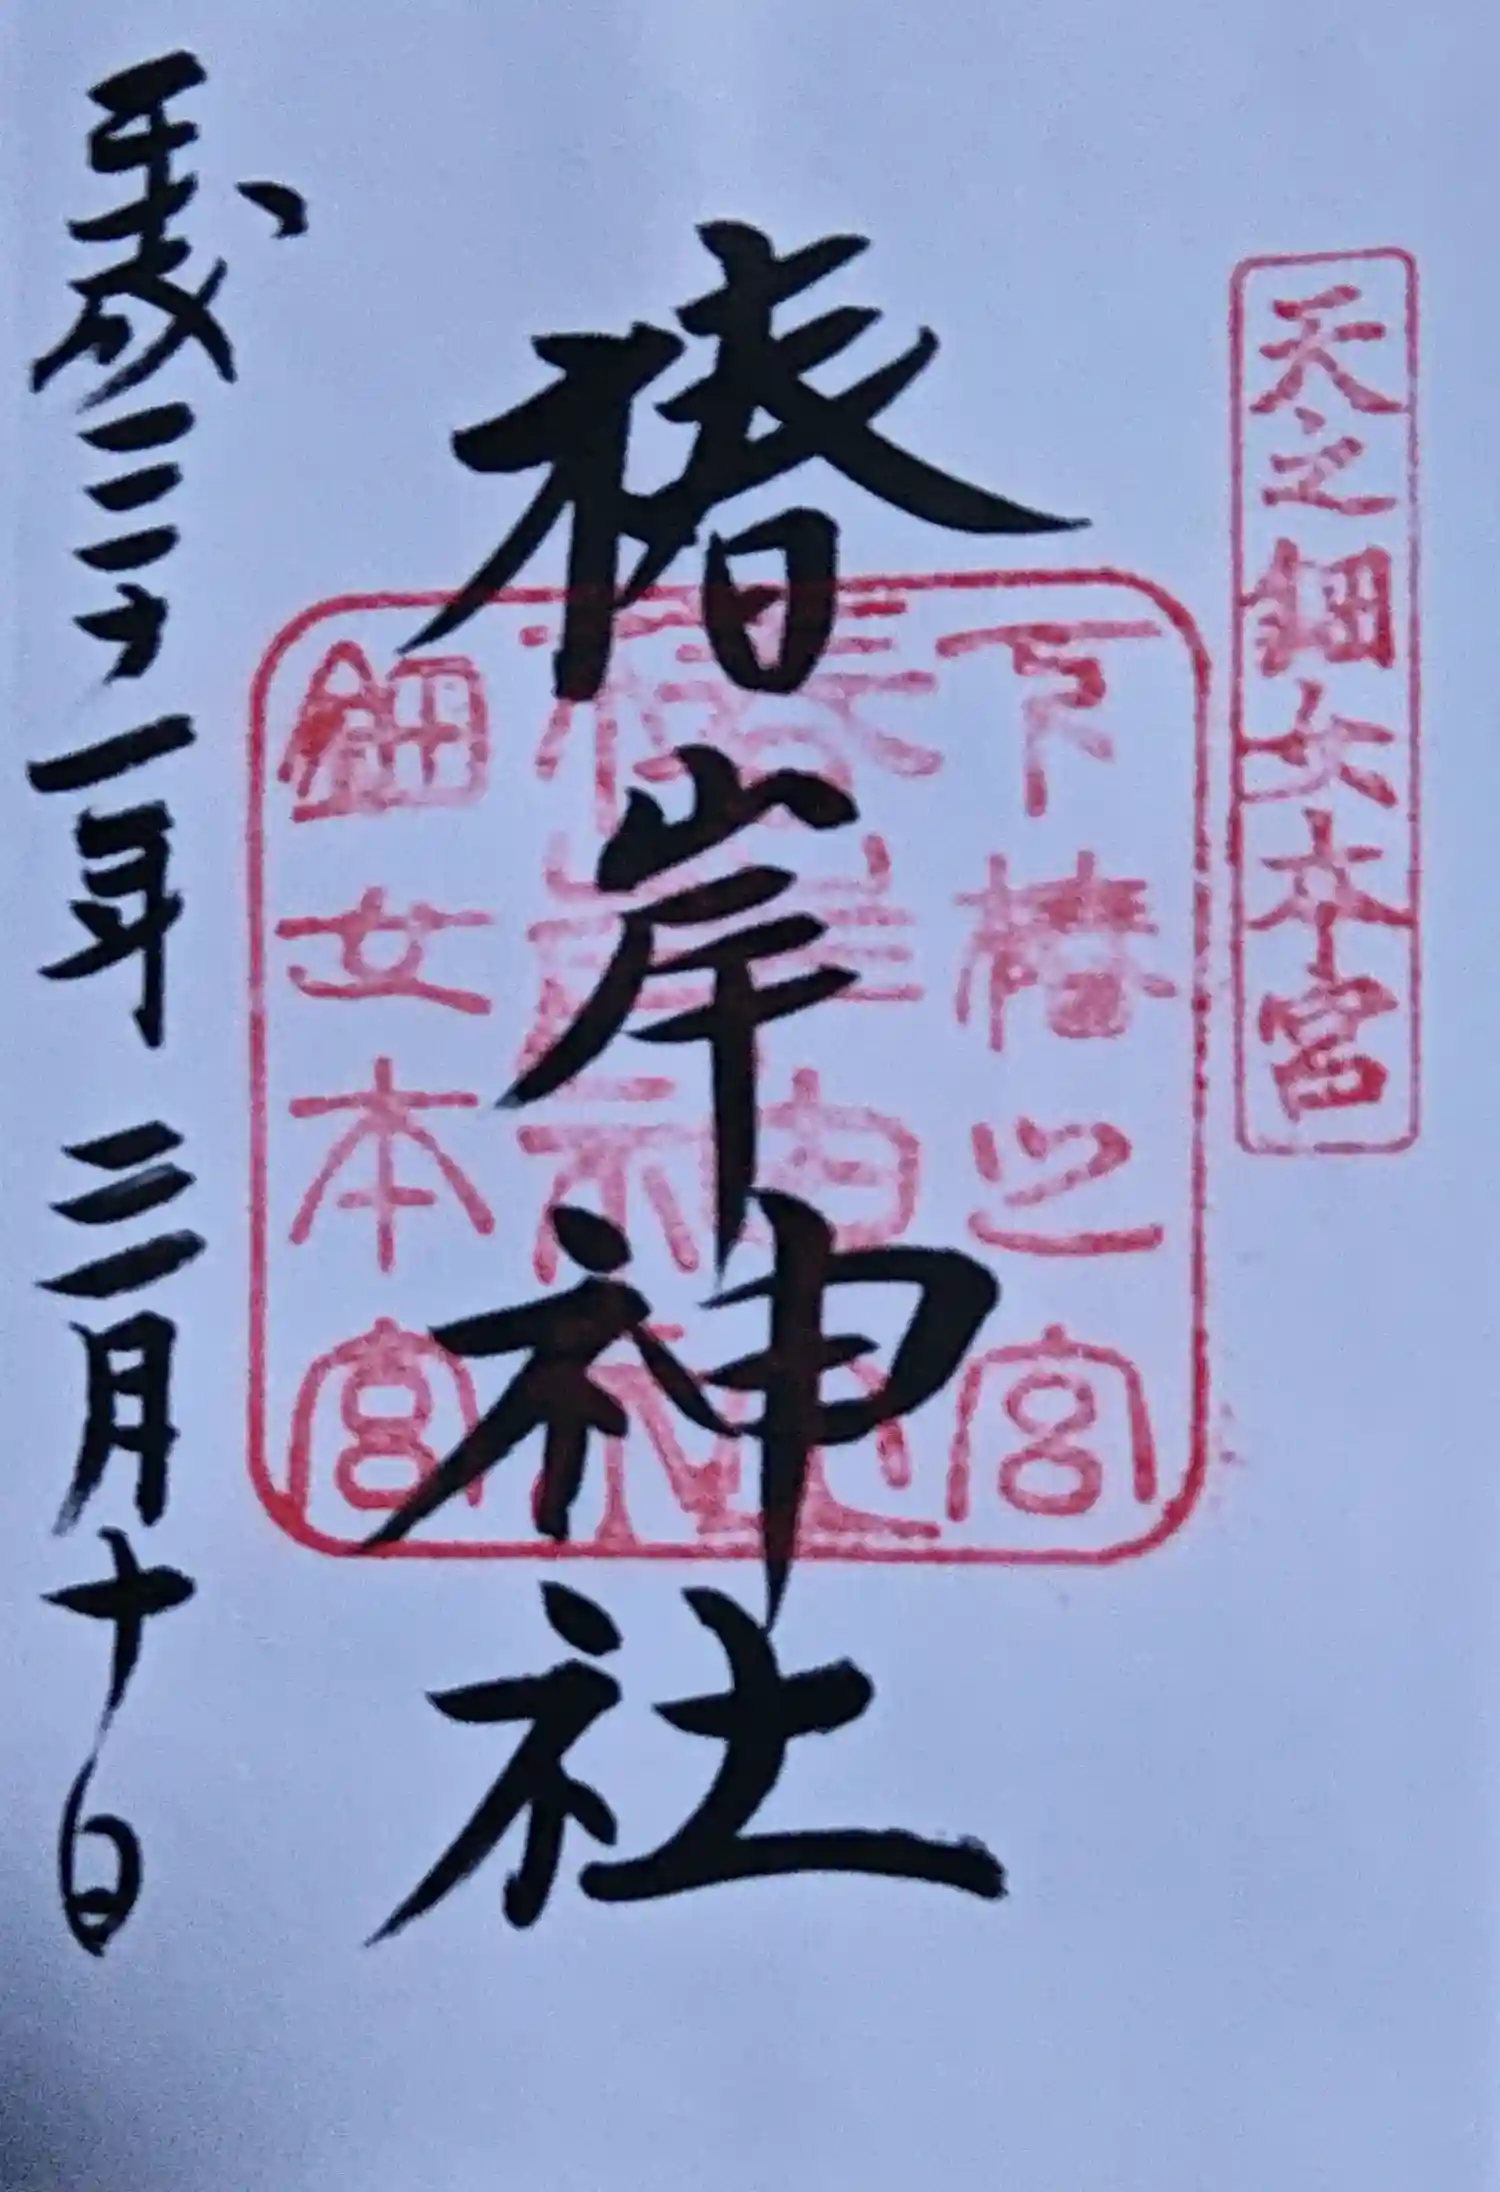 天之鈿女本宮
椿岸神社
下椿之宮
椿岸神社
鈿女本宮
平成三十一年 三月十日